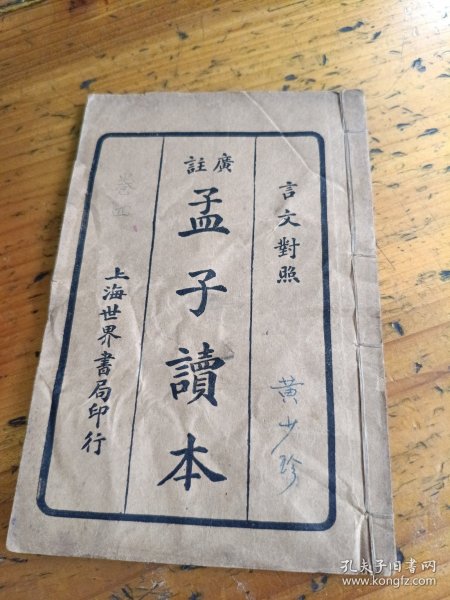 言文對照
黃少珍
廣註
孟子讀本
上海世界書局印行
孔夫子旧书网
www.kongfz.com